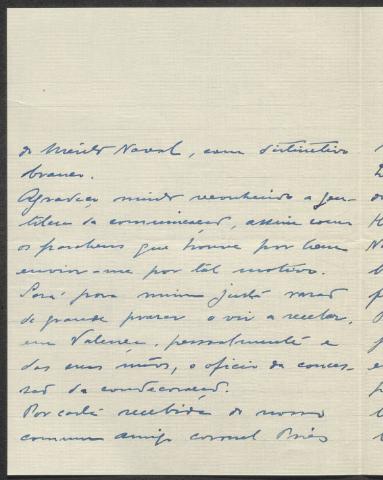 do Mérito Naval, com distintivo
branco.
Agradeço muito reconhecido a gen-
tileza da comunicação, assim como
os parabens que houve por bem
enviar-me por tal motivo.
Será para mim justa razão
de grande prazer o vir a receber,
em Valença, pessoalmente e
das suas mãos, o oficio da conces-
são da condecoração.
Por carta recebida do nosso
comum amigo coronel